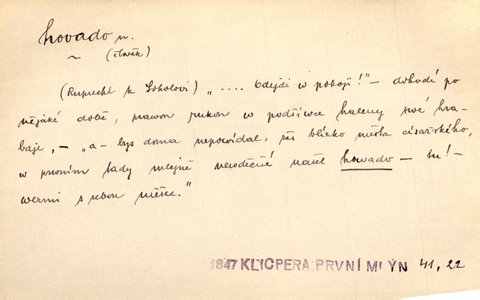 hovado n.
~ (člověk)
(Ruprecht k Sokolovi) „.... Odejdi v pokoji!" — dohodí po
nějaké době, pravou rukou v podšívce haleny své hra-
baje, — „a- bys doma nepovídal, žes blízko města císařského,
w prvním tady mlejně nevděčné našel howado — tu! —
wezmi s sebou měšec."
1847 KLICPERA PRVNÍ MLÝN 41, 22